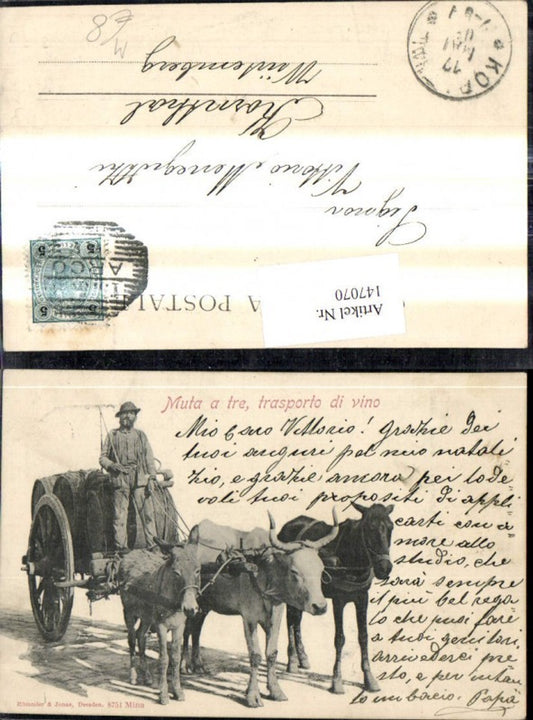 M/8
Signor
Vittorio Menegatti
Kornthal
Würtemberg
KOR
MAI
5
5
5
5
ARCO
A POSTALE
Artikel Nr.
147070
Muta a tre, trasporto di vino
Mio Caro Vittorio! grazie dei
tuoi auguri pel mio natali
zio, e grazie ancora pei lode
voli tuoi propositi di appli
carti con a
more allo
studio, che
sarà sempre
il più bel rega
lo che puoi fare
a tuoi genitori.
arrivederci pre
sto, e per intan
to un bacio. Papà
Römmler & Jonas, Dresden. 8751 Mino